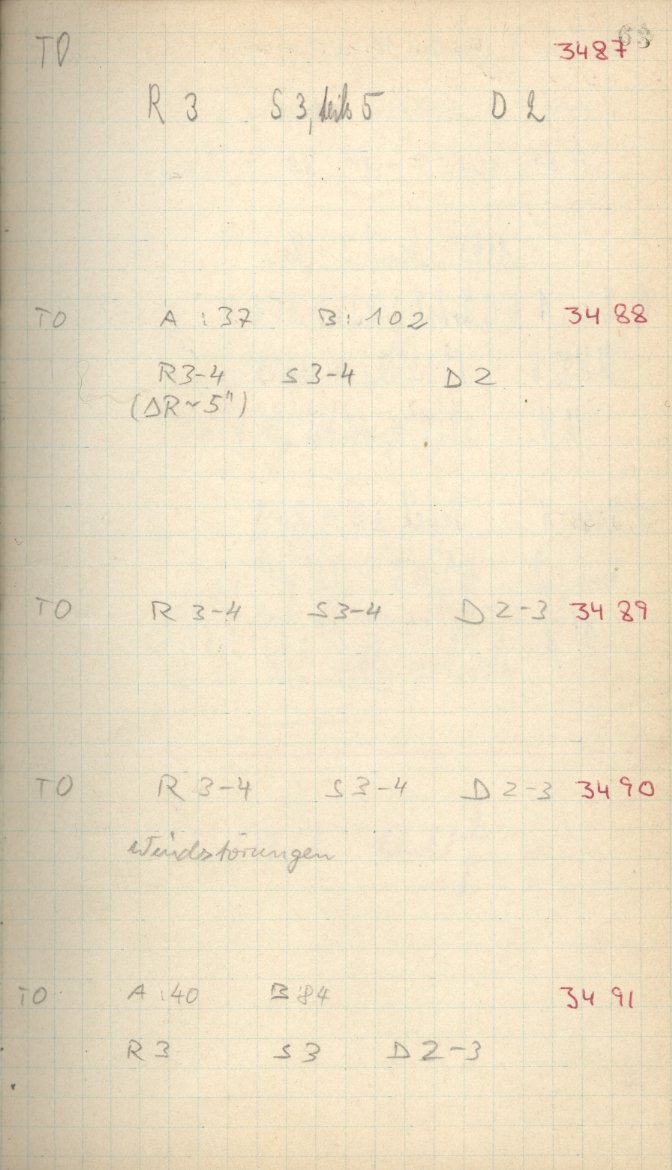 63
TO 3487
R 3 S 3, teils 5 D 2
TO A : 37 B : 102 3488
R3-4 S 3-4 D 2
(ΔR ~ 5")
TO R 3-4 S3-4 D 2-3 3489
TO R 3-4 S 3-4 D 2-3 3490
Windstörungen
TO A : 40 B : 84 3491
R 3 S 3 D 2-3